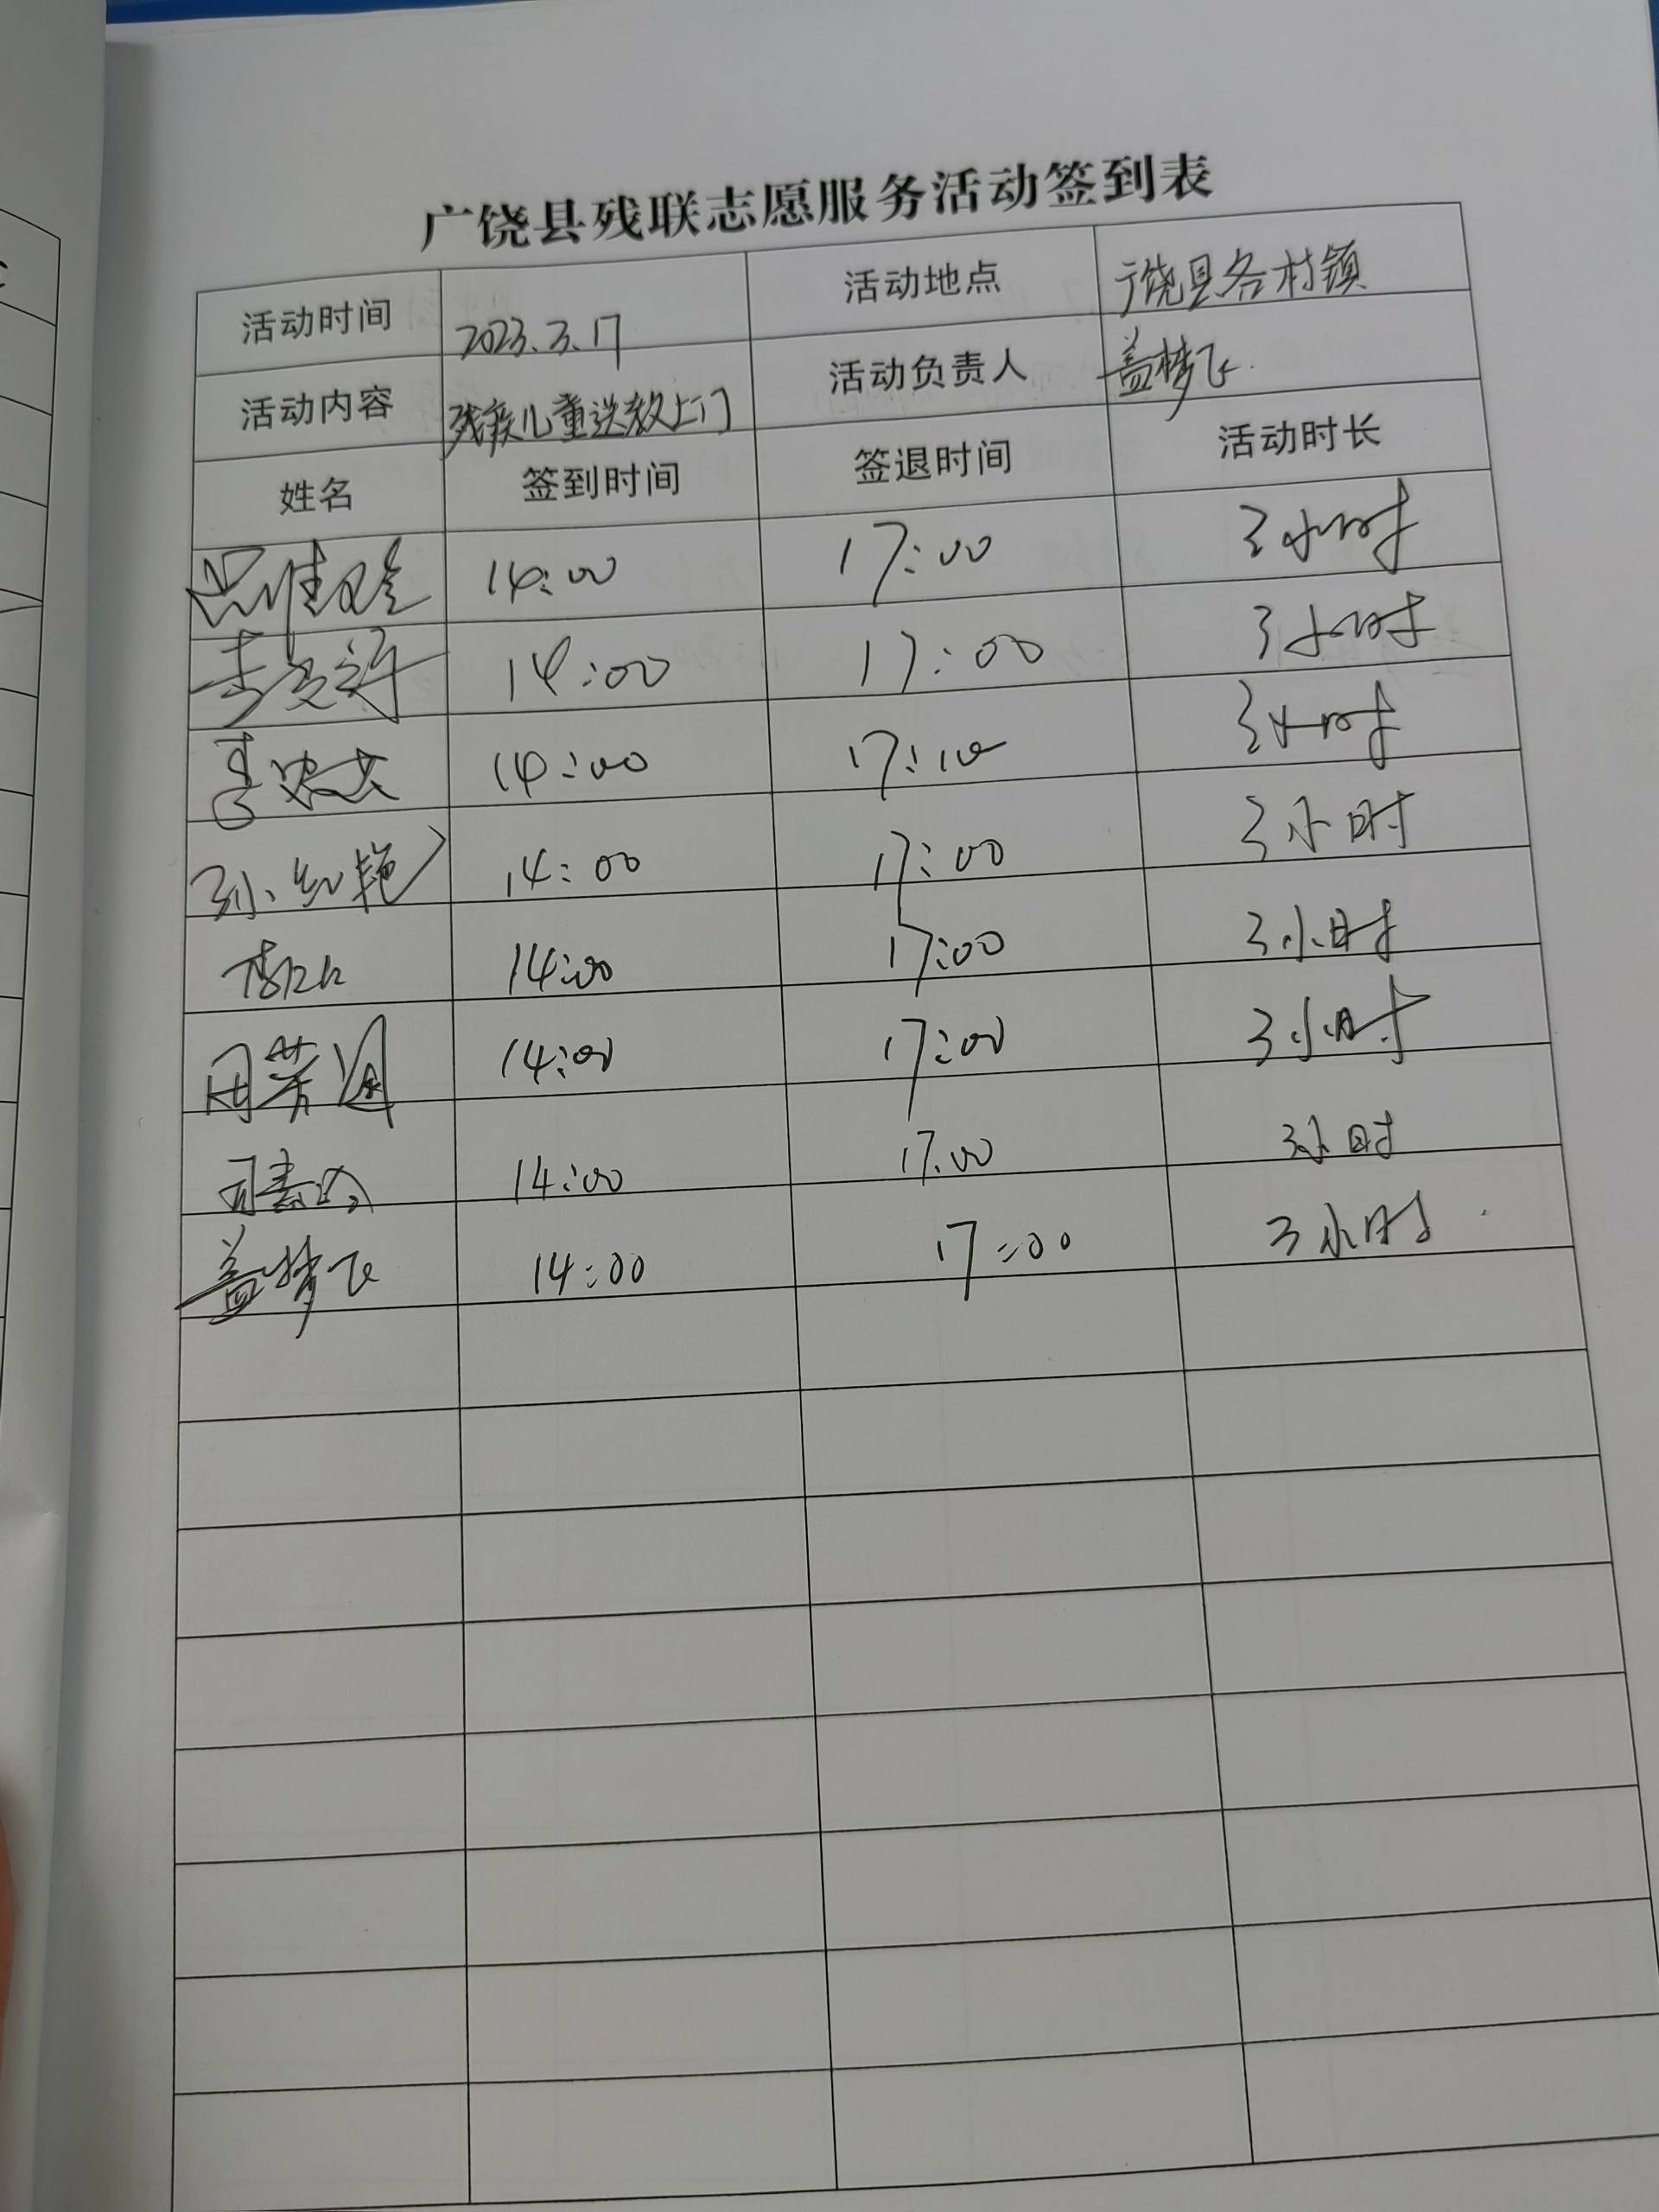 广饶县残联志愿服务活动签到表
活动时间 2023.3.17 活动地点 广饶县各村镇
活动内容 残疾儿童送教上门 活动负责人 盖梦飞
姓名 签到时间 签退时间 活动时长
14:00 17:00 3小时
14:00 17:00 3小时
14:00 17:00 3小时
孙红艳 14:00 17:00 3小时
14:00 17:00 3小时
周芳 14:00 17:00 3小时
14:00 17:00 3小时
盖梦飞 14:00 17:00 3小时